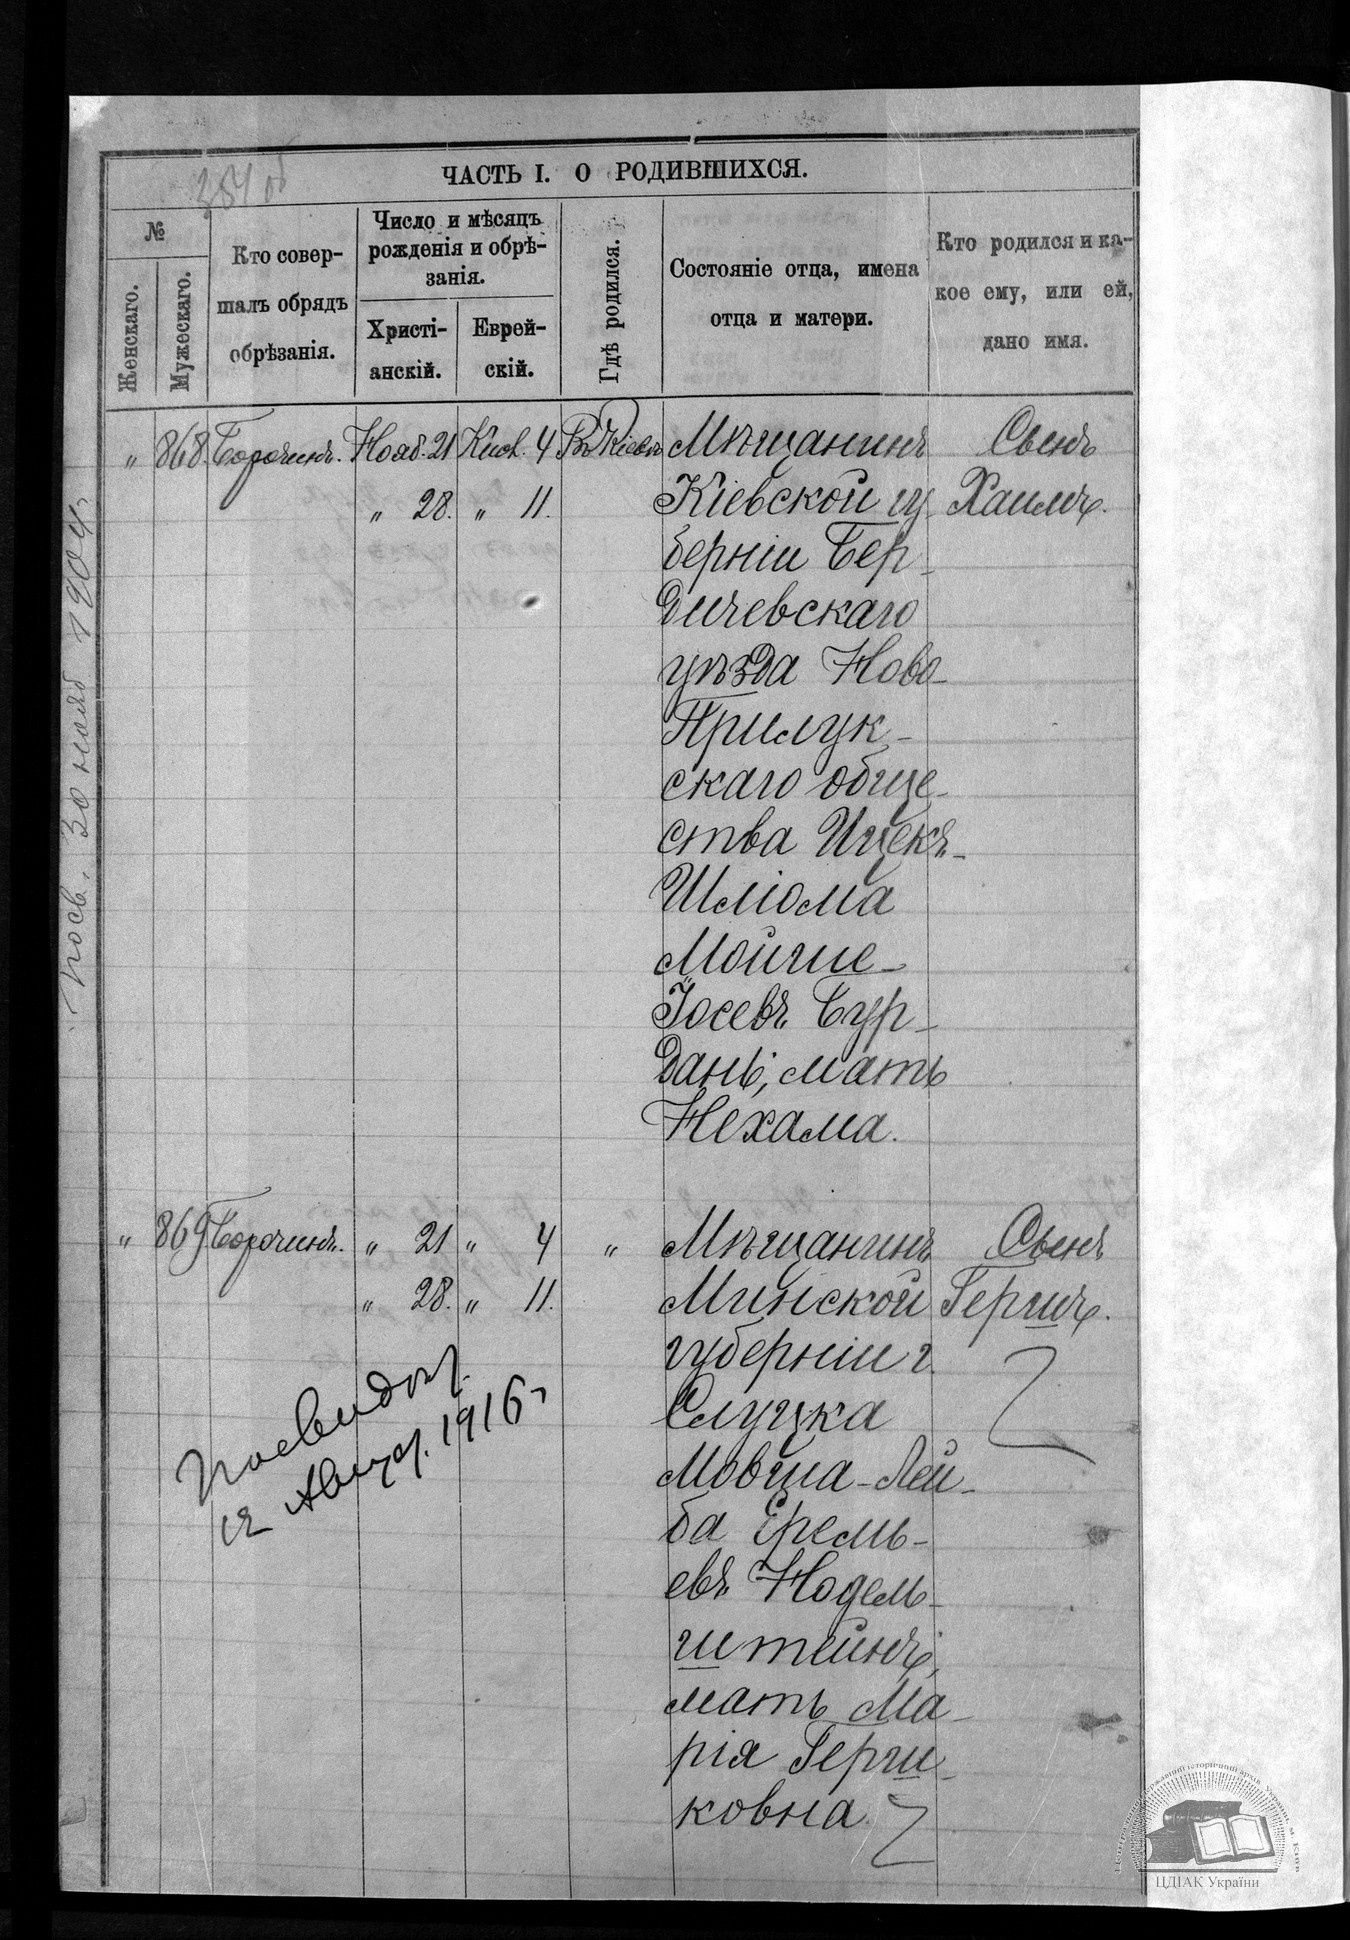 384 об
ЧАСТЬ I. О РОДИВШИХСЯ.
№
Женскаго.
Мужескаго.
Кто совер-
шалъ обрядъ
обрѣзанія.
Число и мѣсяцъ
рожденія и обрѣ-
занія.
Христі-
анскій.
Еврей-
скій.
Гдѣ родился.
Состояніе отца, имена
отца и матери.
Кто родился и ка-
кое ему, или ей,
дано имя.
„ 868. Борочинъ. Нояб. 21 Кисл. 4 Въ Кіевѣ Мѣщанинъ Сынъ
„ 28. „ 11. Кіевской гу- Хаимъ.
берніи Бер-
дичевскаго
уѣзда Ново-
Прилук-
скаго обще-
ства Ицекъ-
Шліома
Мойше-
Іосевъ Бур-
данъ, мать
Нехама.
„ 869 Борочинъ. „ 21 „ 4 „ Мѣщанинъ Сынъ
„ 28. „ 11. Минской Гершъ.
губерніи г.
Слуцка
Мовша-Лей-
ба Ерель-
евъ Нодель-
штейнъ,
мать Ма-
рія Герш-
ковна
посв. 30 нояб 1904 г
Август. 1916 г
ЦДІАК України